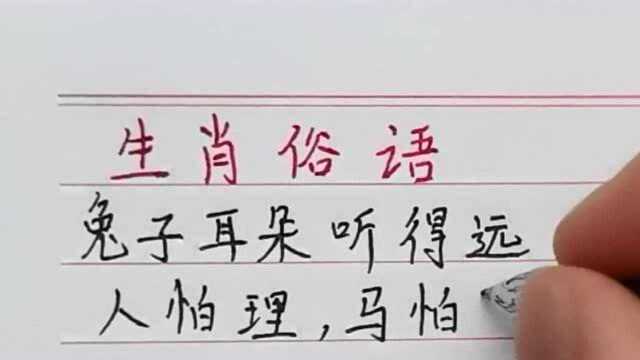 生肖俗语
兔子耳朵听得远
人怕理,马怕